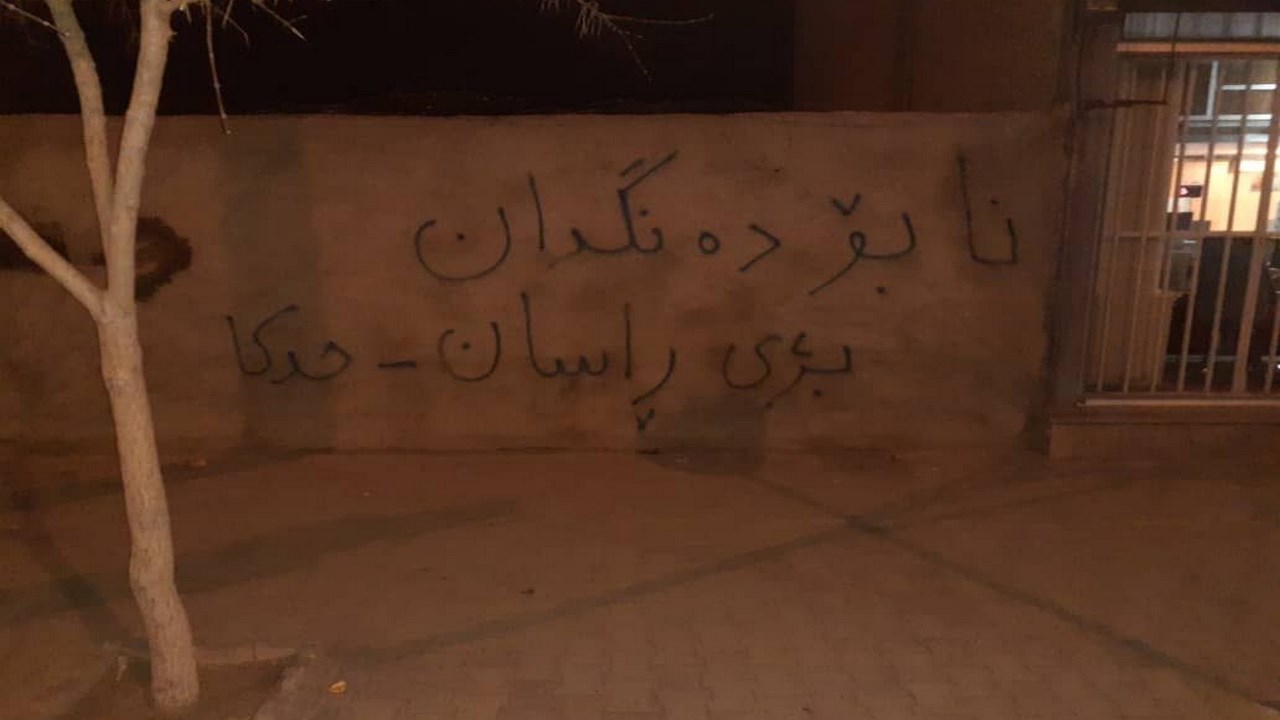 نا بۆ ده نگدان
بژی ڕاسان - حدکا